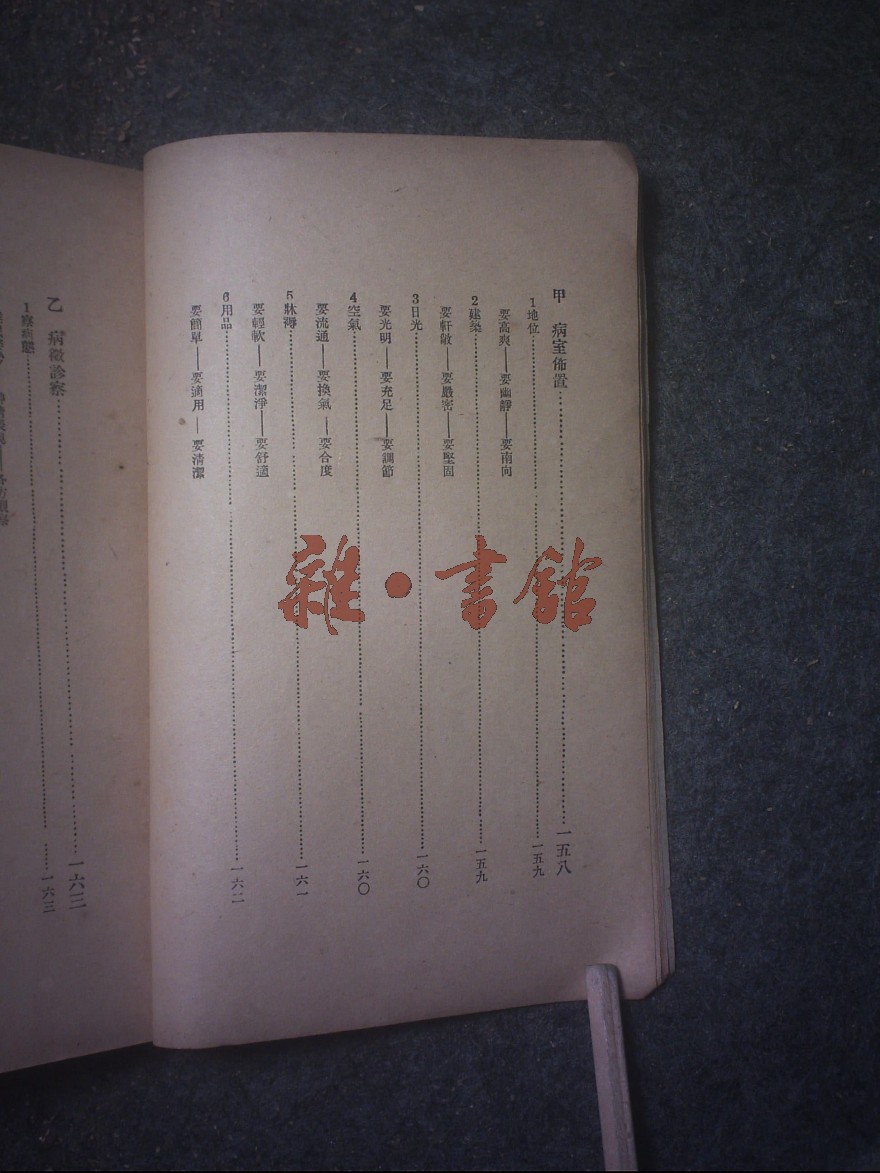 甲　病室佈置……一五八
1地位……一五九
要高爽——要幽靜——要南向
2建築……一五九
要軒敞——要嚴密——要堅固
3日光……一六〇
要光明——要充足——要調節
4空氣……一六〇
要流通——要換氣——要合度
5牀褥……一六一
要輕軟——要潔淨——要舒適
6用品……一六二
要簡單——要適用——要清潔
乙　病徵診察……一六三
1察病態……一六三
雜·書館